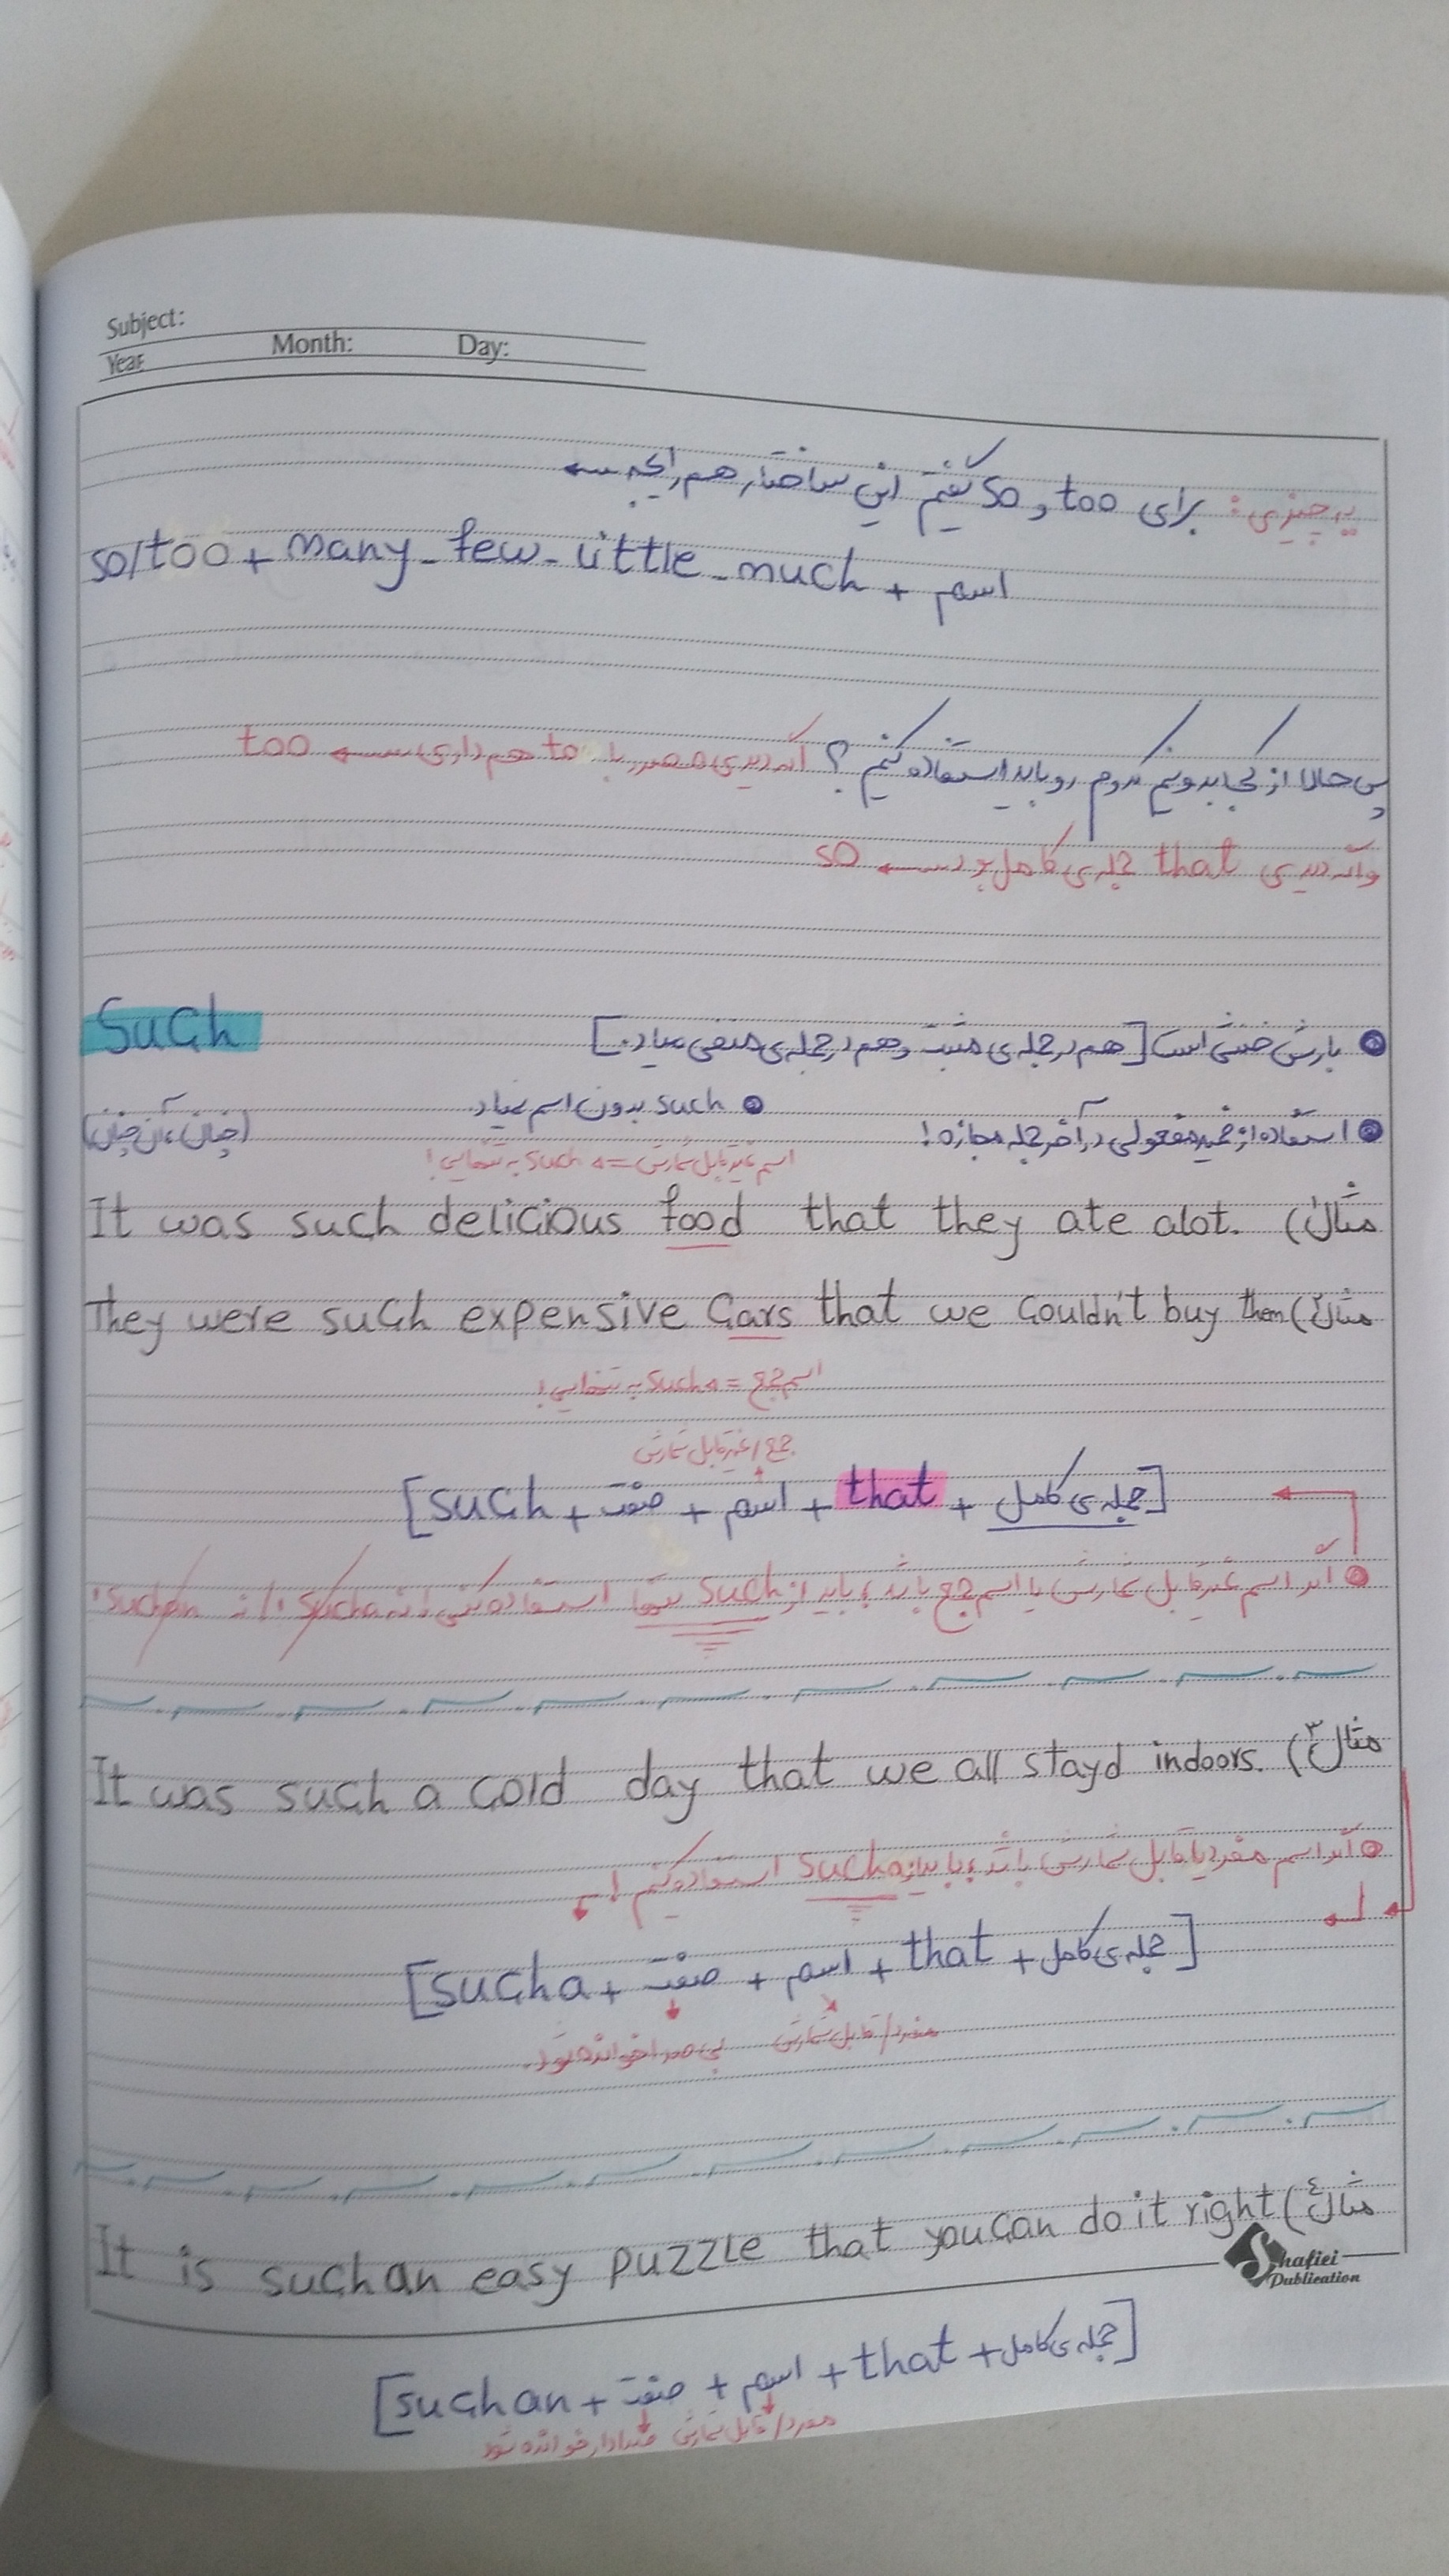 Subject:
Year Month: Day:
یه چیزی: برای too و so گفتیم این ساختار هم رایجه ←
so/too + many - few - little - much + اسم
پس حالا از کجا بدونیم کدوم رو باید استفاده کنیم؟ اگه دیدی مصدر با to هم داری ← too
واگه دیدی that جمله‌ی کامل بود ← so
Such
بارش خنثی است [هم در جمله‌ی مثبت و هم در جمله‌ی منفی میاد.]
such بدون اسم نمیاد
(چنان، آن چنان)
استفاده از ضمیر مفعولی در آخر جمله مجازه!
اسم غیرقابل شمارش = such به تنهایی!
It was such delicious food that they ate alot. (مثال۱
They were such expensive Cars that we Couldn't buy them (مثال۲
اسم جمع = such به تنهایی!
جمع/غیرقابل شمارش
[such + صفت + اسم + that + جمله‌ی کامل]
اگر اسم غیرقابل شمارش یا اسم جمع باشد، باید از such تنها استفاده کنی / نه such a / نه such an
It was such a cold day that we all stayd indoors. (مثال۳
اگر اسم مفرد یا قابل شمارش باشد، باید از such a استفاده کنیم!
[such a + صفت + اسم + that + جمله‌ی کامل]
مفرد/قابل شمارش بی صدا خوانده شود.
It is such an easy puzzle that you can do it right (مثال۴
Shafiei
Publication
[such an + صفت + اسم + that + جمله‌ی کامل]
مفرد/قابل شمارش صدادار خوانده شود